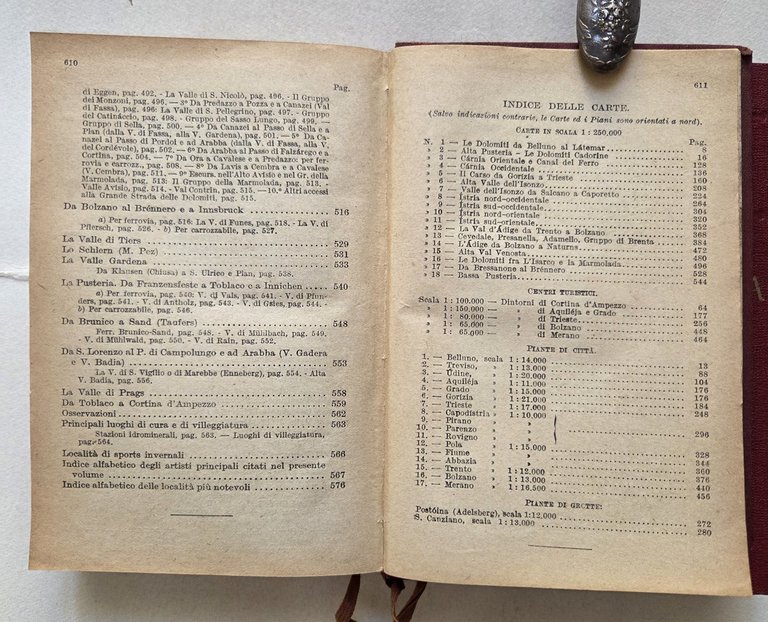 610
Pag.
di Eggen, pag. 492. - La Valle di S. Nicolò, pag. 496. - Il Gruppo
dei Monzoni, pag. 496. — 3º Da Predazzo a Pozza e a Canazei (Val
di Fassa), pag. 496: La V. di S. Pellegrino, pag. 497. - Gruppo
del Catináccio, pag. 498. - Gruppo del Sasso Lungo, pag. 499. -
Gruppo di Sella, pag. 500. — 4º Da Canazei al Passo di Sella e a
Plan (dalla V. di Fassa, alla V. Gardena), pag. 501. — 5º Da Ca-
nazei al Passo di Pordoi e ad Arabba (dalla V. di Fassa, alla V.
del Cordévole), pag. 502. — 6º Da Arabba al Passo di Falzárego e a
Cortina, pag. 504. — 7º Da Ora a Cavalese e a Predazzo: per fer-
rovia e carrozz., pag. 508. — 8º Da Lavis a Cembra e a Cavalese
(V. Cembra), pag. 511. — 9º Escurs. nell'Alto Avisio e nel Gr. della
Marmolada, pag. 513: Il Gruppo della Marmolada, pag. 513. -
Valle Avisio, pag. 514. - Val Contrin, pag. 515. — 10.º Altri accessi
alla Grande Strada delle Dolomiti, pag. 515.
Da Bolzano al Brénnero e a Innsbruck 516
a) Per ferrovia, pag. 516: La V. di Funes, pag. 518. - La V. di
Pflersch, pag. 526. - b) Per carrozzabile, pag. 527.
La Valle di Tiers 529
Lo Schlern (M. Pez) 531
La Valle Gardena 533
Da Klausen (Chiusa) a S. Ulrico e Plan, pag. 538.
La Pusteria. Da Franzensfeste a Toblaco e a Innichen 540
a) Per ferrovia, pag. 540: V. di Vals, pag. 541. - V. di Pfun-
ders, pag. 541. - V. di Antholz, pag. 543. - V. di Gsies, pag. 544. -
b) Per carrozzabile, pag. 546.
Da Brunico a Sand (Taufers) 548
Ferr. Brunico-Sand, pag. 548. - V. di Mühlbach, pag. 549. -
V. di Mühlwald, pag. 550. - V. di Rain, pag. 552.
Da S. Lorenzo al P. di Campolungo e ad Arabba (V. Gadera
e V. Badia) 553
La V. di S. Vigilio o di Marebbe (Enneberg), pag. 554. - Alta
V. Badia, pag. 556.
La Valle di Prags 558
Da Toblaco a Cortina d'Ampezzo 559
Osservazioni 562
Principali luoghi di cura e di villeggiatura 563
Stazioni idrominerali, pag. 563. — Luoghi di villeggiatura,
pag. 564.
Località di sports invernali 566
Indice alfabetico degli artisti principali citati nel presente
volume 567
Indice alfabetico delle località più notevoli 576
611
INDICE DELLE CARTE.
(Salvo indicazioni contrarie, le Carte ed i Piani sono orientati a nord).
CARTE IN SCALA 1 : 250,000
Pag.
N. 1 — Le Dolomiti da Belluno al Látemar 8
» 2 — Alta Pusteria - Le Dolomiti Cadorine 16
» 3 — Cárnia Orientale e Canal del Ferro 128
» 4 — Cárnia Occidentale 136
» 5 — Il Carso da Gorizia a Trieste 160
» 6 — Alta Valle dell'Isonzo 208
» 7 — Valle dell'Isonzo da Salcano a Caporetto 224
» 8 — Ístria nord-occidentale 264
» 9 — Ístria sud-occidentale 304
» 10 — Ístria nord-orientale 320
» 11 — Ístria sud-orientale 352
» 12 — La Val d'Ádige da Trento a Bolzano 368
» 13 — Cevedale, Presanella, Adamello, Gruppo di Brenta 384
» 14 — L'Ádige da Bolzano a Naturns 472
» 15 — Alta Val Venosta 480
» 16 — Le Dolomiti fra L'Isarco e la Marmolada 496
» 17 — Da Bressanone al Brénnero 528
» 18 — Bassa Pusteria 544
CENTRI TURISTICI.
Scala 1 : 100.000 — Dintorni di Cortina d'Ampezzo 64
» 1 : 150,000 — » di Aquiléja e Grado 177
» 1 : 80,000 — » di Trieste 256
» 1 : 65,000 — » di Bolzano 448
» 1 : 65,000 — » di Merano 464
PIANTE DI CITTÀ.
1. — Belluno, scala 1 : 14,000 13
2. — Treviso, » 1 : 13,000 88
3. — Údine, » 1 : 20,000 104
4. — Aquiléja » 1 : 11,000 176
5. — Grado » 1 : 15,000 176
6. — Gorizia » 1 : 21,000 184
7. — Trieste » 1 : 17,000 248
8. — Capodístria » 1 : 10,000
9. — Pirano »
10. — Parenzo » 296
11. — Rovigno »
12. — Pola » 1 : 15,000 328
13. — Fiume » 344
14. — Abbazia » 360
15. — Trento » 1 : 12,000 376
16. — Bolzano » 1 : 13,000 440
17. — Merano » 1 : 16,500 456
PIANTE DI GROTTE:
Postóina (Adelsberg), scala 1:12,000 272
S. Canziano, scala 1 : 13,000 280